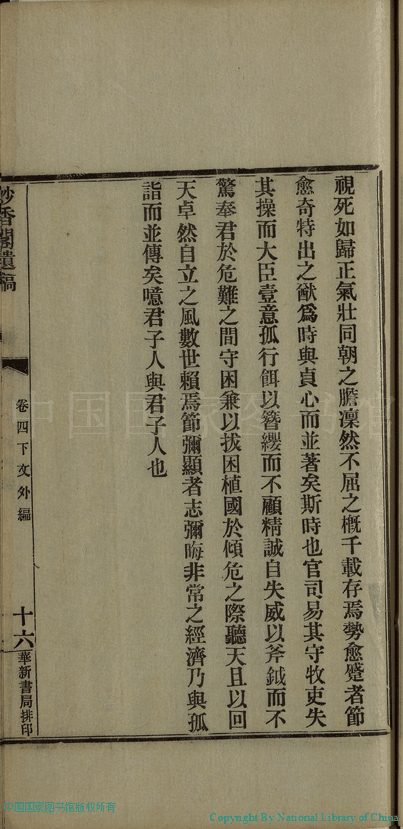 視死如歸正氣壯同朝之膽凜然不屈之概千載存焉勢愈蹙者節
愈奇特出之猷爲時與貞心而並著矣斯時也官司易其守牧吏失
其操而大臣壹意孤行餌以簪纓而不顧精誠自失威以斧鉞而不
驚奉君於危難之間守困兼以拔困植國於傾危之際聽天且以回
天卓然自立之風數世賴焉節彌顯者志彌晦非常之經濟乃與孤
詣而並傳矣噫君子人與君子人也
妙香閣遺稿
卷四下文外編
十六
華新書局排印
中国国家图书馆版权所有
Copyright By National Library of China